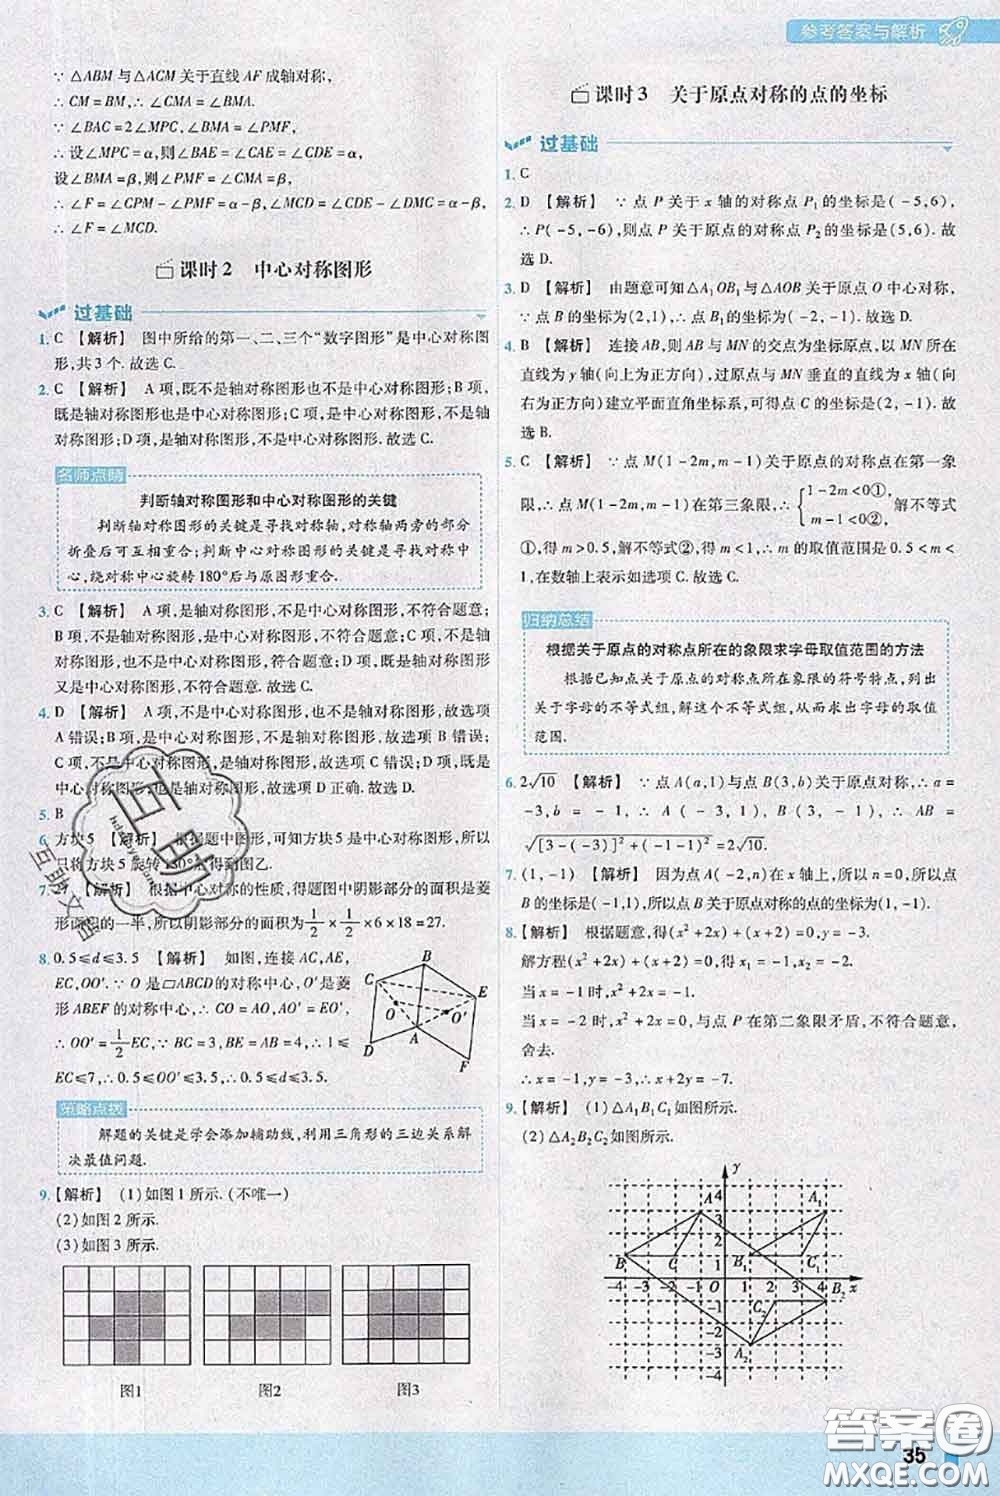 参考答案与解析
∵ △ABM 与△ACM 关于直线 AF 成轴对称,
∴ CM = BM,∴ ∠CMA = ∠BMA.
∵ ∠BAC = 2∠MPC,∠BMA = ∠PMF,
∴ 设∠MPC = α,则∠BAE = ∠CAE = ∠CDE = α,
设∠BMA = β,则∠PMF = ∠CMA = β,
∴ ∠F = ∠CPM - ∠PMF = α - β,∠MCD = ∠CDE - ∠DMC = α - β,
∴ ∠F = ∠MCD.
课时 2 中心对称图形
过基础
1. C 【解析】 图中所给的第一、二、三个“数字图形”是中心对称图
形,共 3 个. 故选 C.
2. C 【解析】 A 项,既不是轴对称图形也不是中心对称图形;B 项,
既是轴对称图形也是中心对称图形;C 项,是中心对称图形,不是轴
对称图形;D 项,是轴对称图形,不是中心对称图形. 故选 C.
名师点睛
判断轴对称图形和中心对称图形的关键
判断轴对称图形的关键是寻找对称轴,对称轴两旁的部分
折叠后可互相重合;判断中心对称图形的关键是寻找对称中
心,绕对称中心旋转 180°后与原图形重合.
3. C 【解析】 A 项,是轴对称图形,不是中心对称图形,不符合题意;
B 项,不是中心对称图形,是轴对称图形,不符合题意;C 项,既是中
心对称图形又是轴对称图形,符合题意;D 项,既不是轴对称图形
又不是中心对称图形,不符合题意. 故选 C.
4. D 【解析】 A 项,不是中心对称图形,也不是轴对称图形,故选项
A 错误;B 项,不是中心对称图形,是轴对称图形,故选项 B 错误;
C 项,不是中心对称图形,是轴对称图形,故选项 C 错误;D 项,既是
中心对称图形,也是轴对称图形,故选项 D 正确. 故选 D.
5. B
6. 方块 5 【解析】 根据题中图形,可知方块 5 是中心对称图形,所以
只将方块 5 旋转 180°得到图乙.
7. 【解析】 根据中心对称的性质,得题图中阴影部分的面积是菱
形面积的一半,所以阴影部分的面积为 1/2 × 1/2 × 6 × 18 = 27.
8. 0.5 ≤ d ≤ 3.5 【解析】 如图,连接 AC,AE,
EC,OO′. ∵ O 是▱ABCD 的对称中心,O′是菱
形 ABEF 的对称中心,∴ CO = AO,AO′ = EO′,
∴ OO′ = 1/2 EC,∵ BC = 3,BE = BA = 4,∴ 1 ≤
EC ≤ 7,∴ 0.5 ≤ OO′ ≤ 3.5,∴ 0.5 ≤ d ≤ 3.5.
B
C
E
O
O′
D
A
F
策略点拨
解题的关键是学会添加辅助线,利用三角形的三边关系解
决最值问题.
9. 【解析】 (1)如图 1 所示. (不唯一)
(2)如图 2 所示.
(3)如图 3 所示.
图1 图2 图3
课时 3 关于原点对称的点的坐标
过基础
1. C
2. D 【解析】 ∵ 点 P 关于 x 轴的对称点 P₁ 的坐标是( -5,6),
∴ P( -5, -6),则点 P 关于原点的对称点 P₂ 的坐标是(5,6). 故
选 D.
3. D 【解析】 由题意可知△A₁OB₁ 与△AOB 关于原点 O 中心对称,
∵ 点 B 的坐标为(2,1),∴ 点 B₁ 的坐标为( -2, -1). 故选 D.
4. B 【解析】 连接 AB,则 AB 与 MN 的交点为坐标原点,以 MN 所在
直线为 y 轴(向上为正方向),过原点与 MN 垂直的直线为 x 轴(向
右为正方向)建立平面直角坐标系,可得点 C 的坐标是(2, -1). 故
选 B.
5. C 【解析】 ∵ 点 M(1 - 2m,m - 1)关于原点的对称点在第一象
限,∴ 点 M(1 - 2m,m - 1)在第三象限,∴ { 1 - 2m < 0①, m - 1 < 0②, 解不等式
①,得 m > 0.5,解不等式②,得 m < 1,∴ m 的取值范围是 0.5 < m <
1,在数轴上表示如选项 C 所示. 故选 C.
归纳总结
根据关于原点的对称点所在的象限求字母取值范围的方法
根据已知点关于原点的对称点所在象限的符号特点,列出
关于字母的不等式组,解这个不等式组,从而求出字母的取值
范围.
6. 2√10 【解析】 ∵ 点 A(a,1)与点 B(3,b)关于原点对称,∴ a =
-3,b = -1,∴ A( -3,1),B(3, -1),∴ AB =
√([3 - ( -3)]² + ( -1 - 1)²) = 2√10.
7. (1, -1) 【解析】 因为点 A( -2,n)在 x 轴上,所以 n = 0,所以点
B 的坐标为( -1,1),所以点 B 关于原点对称的点为(1, -1).
8. 【解析】 根据题意,得(x² + 2x) + (x + 2) = 0,y = -3.
解方程(x² + 2x) + (x + 2) = 0,得 x₁ = -1,x₂ = -2.
当 x = -1 时,x² + 2x = -1 < 0,符合题意;
当 x = -2 时,x² + 2x = 0,与点 P 在第二象限矛盾,不符合题意,
舍去.
∴ x = -1,y = -3,∴ x + 2y = -7.
9. 【解析】 (1)△A₁B₁C₁ 如图所示.
(2)△A₂B₂C₂ 如图所示.
y
4
3
2
1
A
A₁
B
C
B₁
C₁
-4 -3 -2 -1 O 1 2 3 4 B₂ x
C₂
-1
-2
-3
-4
A₂
35
互助文档
答案圈
MXQE.COM